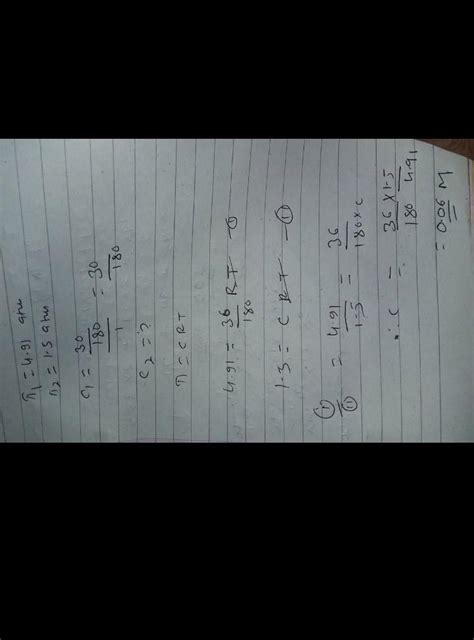 π₁ = 4.91 atm
π₂ = 1.5 atm
C₁ = 30/180/1 = 30/180
C₂ = ?
π = CRT
4.91 = 36/180 RT - ①
1.5 = C RT - ②
①/② = 4.91/1.5 = 36/180×c
∴ c = 36×1.5/180 4.91
= 0.06 M